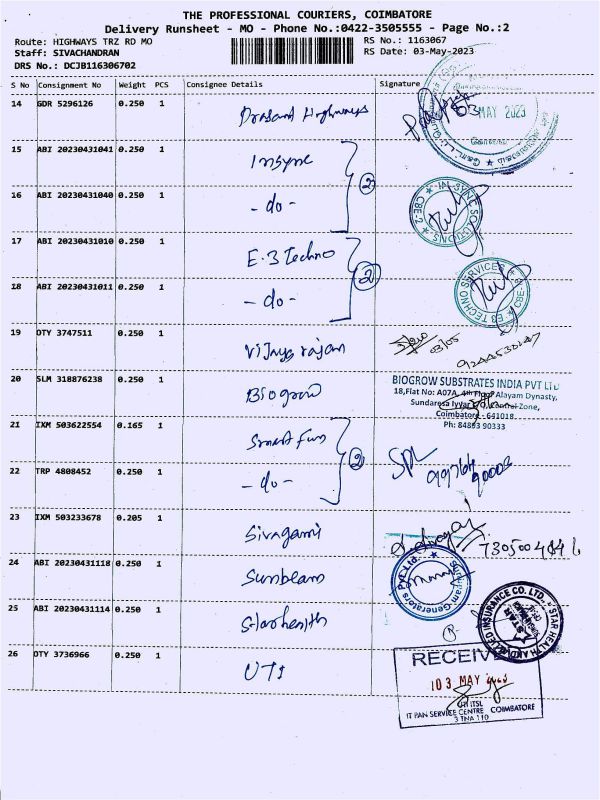 THE PROFESSIONAL COURIERS, COIMBATORE
Delivery Runsheet - MO - Phone No.:0422-3505555 - Page No.:2
Route: HIGHWAYS TRZ RD MO
RS No.: 1163067
Staff: SIVACHANDRAN
RS Date: 03-May-2023
DRS No.: DCJB116306702
S No Consignment No Weight PCS Consignee Details Signature
14 GDR 5296126 0.250 1 Prasant Highways
03 MAY 2023
15 ABI 20230431041 0.250 1 Insync
2
16 ABI 20230431040 0.250 1 - do -
CBE-2
17 ABI 20230431010 0.250 1 E.3 Techno
2
18 ABI 20230431011 0.250 1 - do -
E3 TECHNO SERVICES
19 OTY 3747511 0.250 1 Vijaya rajan
03/05
20 SLM 318876238 0.250 1 Biogrow
BIOGROW SUBSTRATES INDIA PVT LTD
18,Flat No: A07A, 4th Floor Alayam Dynasty,
Sundaresa Iyyar
Zone,
Coimbatore - 641018.
Ph: 84893 90333
21 IXM 503622554 0.165 1 Smart Fun
2
22 TRP 4808452 0.250 1 - do -
23 IXM 503233678 0.205 1 Sivagami
24 ABI 20230431118 0.250 1 Sunbeam
Generators Pvt. Ltd.
25 ABI 20230431114 0.250 1 Starhealth
STAR HEALTH AND ALLIED INSURANCE CO. LTD.
26 OTY 3736966 0.250 1 UTI
03 MAY 2023
UTI ITSL
IT PAN SERVICE CENTRE COIMBATORE
3 TNA 110